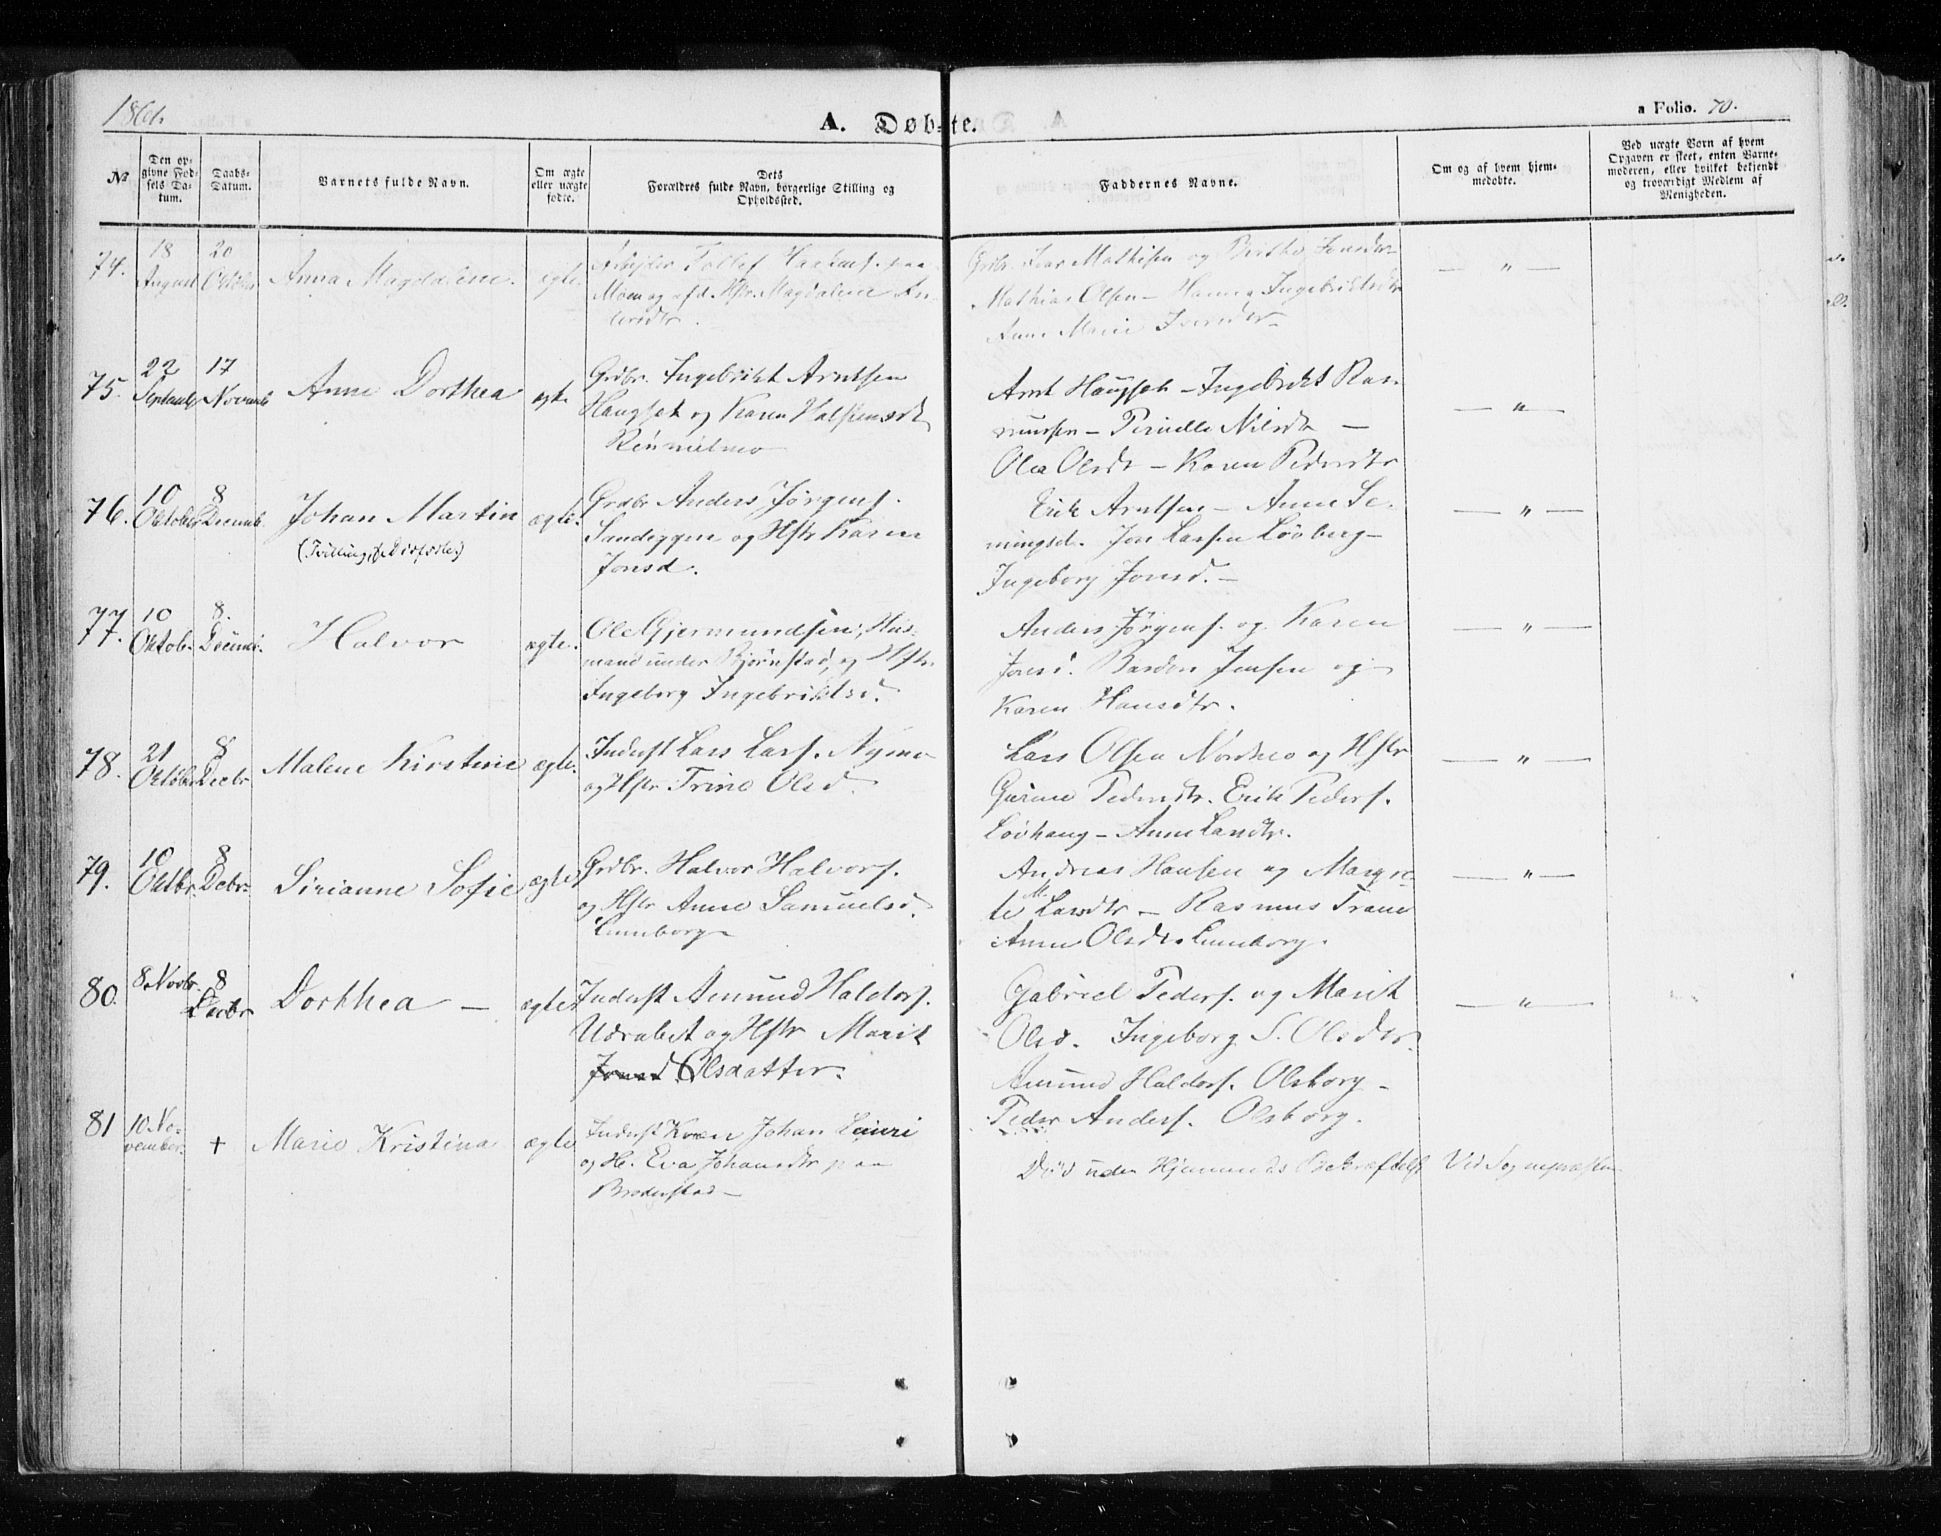 1861.
A. Døbte.
a Folio. 70.
No
Den opgivne Fødsels Datum.
Daabs-Datum.
Barnets fulde Navn.
Om ægte eller uægte fødte.
Dets Forældres fulde Navn, borgerlige Stilling og Opholdssted.
Faddernes Navne.
Om og af hvem hjemmedøbte.
Ved uægte Børn af hvem Opgaven er skeet, enten Barnemoderen, eller hvilket bekjendt og troværdigt Medlem af Menigheden.
74. 18 August 20 Oktober Anna Magdalene. ægte
Arbeider Tollef paa
Moen og Hstr. Magdalene
Grdbr. Iver Mathisen og
Mathias Olsen – Hanna Ingebriktsdtr
Anne Marie Iversdtr – " –
75. 22 September 17 Novemb Anne Dorthea ægte
Grdbr. Ingebrikt Arntsen
Haugset og Karen
Arnt Haugset – Ingebrikt Ras-
mussen – Pernelle Nilsdtr –
Olea Olsdtr – Karen Pedersdtr – " –
76. 10 Oktober 8 Decemb. Johan Martin ægte.
(Tvilling,
Grdbr Anders Jørgens.
Sandeggen og Hstr Karen
Jonsd.
Erik Arntsen – Anne Se-
mingsd. Jon Larsen Løvberg –
Ingeborg Jonsd. – – " –
77. 10 Oktob. 8. Decemb. Halvor ægte.
Ole Gjermundsen, Hus-
mand under Bjørnstad, og Hstr.
Ingeborg Ingebriktsd.
Anders Jørgens. og Karen
Jonsd. Bardon Jensen og
Karen Hansdtr. – " –
78. 21 Oktober 8 Decbr Malene Kirstine ægte.
Inderst Lars Lars. Nymo
og Hstr Trine Olsd.
Lars Olsen Nordmo og Hstr
Gurine Pedersdtr. Erik Peders.
Løvhaug – Anne Larsdtr. – " –
79. 10 Oktbr. 8 Decbr. Sirianne Sofie ægte
Grdbr. Halvor Halvors.
og Hstr Anne Samuelsd.
Luneborg
Andreas Hansen og Margre-
te M. Larsdtr – Rasmus Trane
Anne Olsdtr Luneborg. – " –
80. 8. Novbr. 8 Decbr Dorthea – ægte
Inderst Amund Haldors.
Udrabet og Hstr Marit
Jonsd Olsdatter.
Gabriel Peders. og Marit
Olsd. Ingeborg S. Olsdtr.
Amund Haldors. Olsborg –
Peder Anders. Olsborg. – " –
81 10. November. + Marie Kristina ægte
Inderst Kvæn Johan Lauri
og H. Eva Johansdtr paa
Broderstad –
Død uden Hjemmedøbs Bekræftelse Ved Sognepræsten